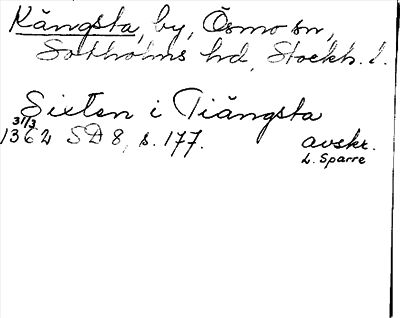 Kängsta, by, Ösmo sn,
Sotholms hd, Stockh. l.
Sixten i Tiängsta
31/3
1362 SD 8, s. 177. avskr.
L. Sparre